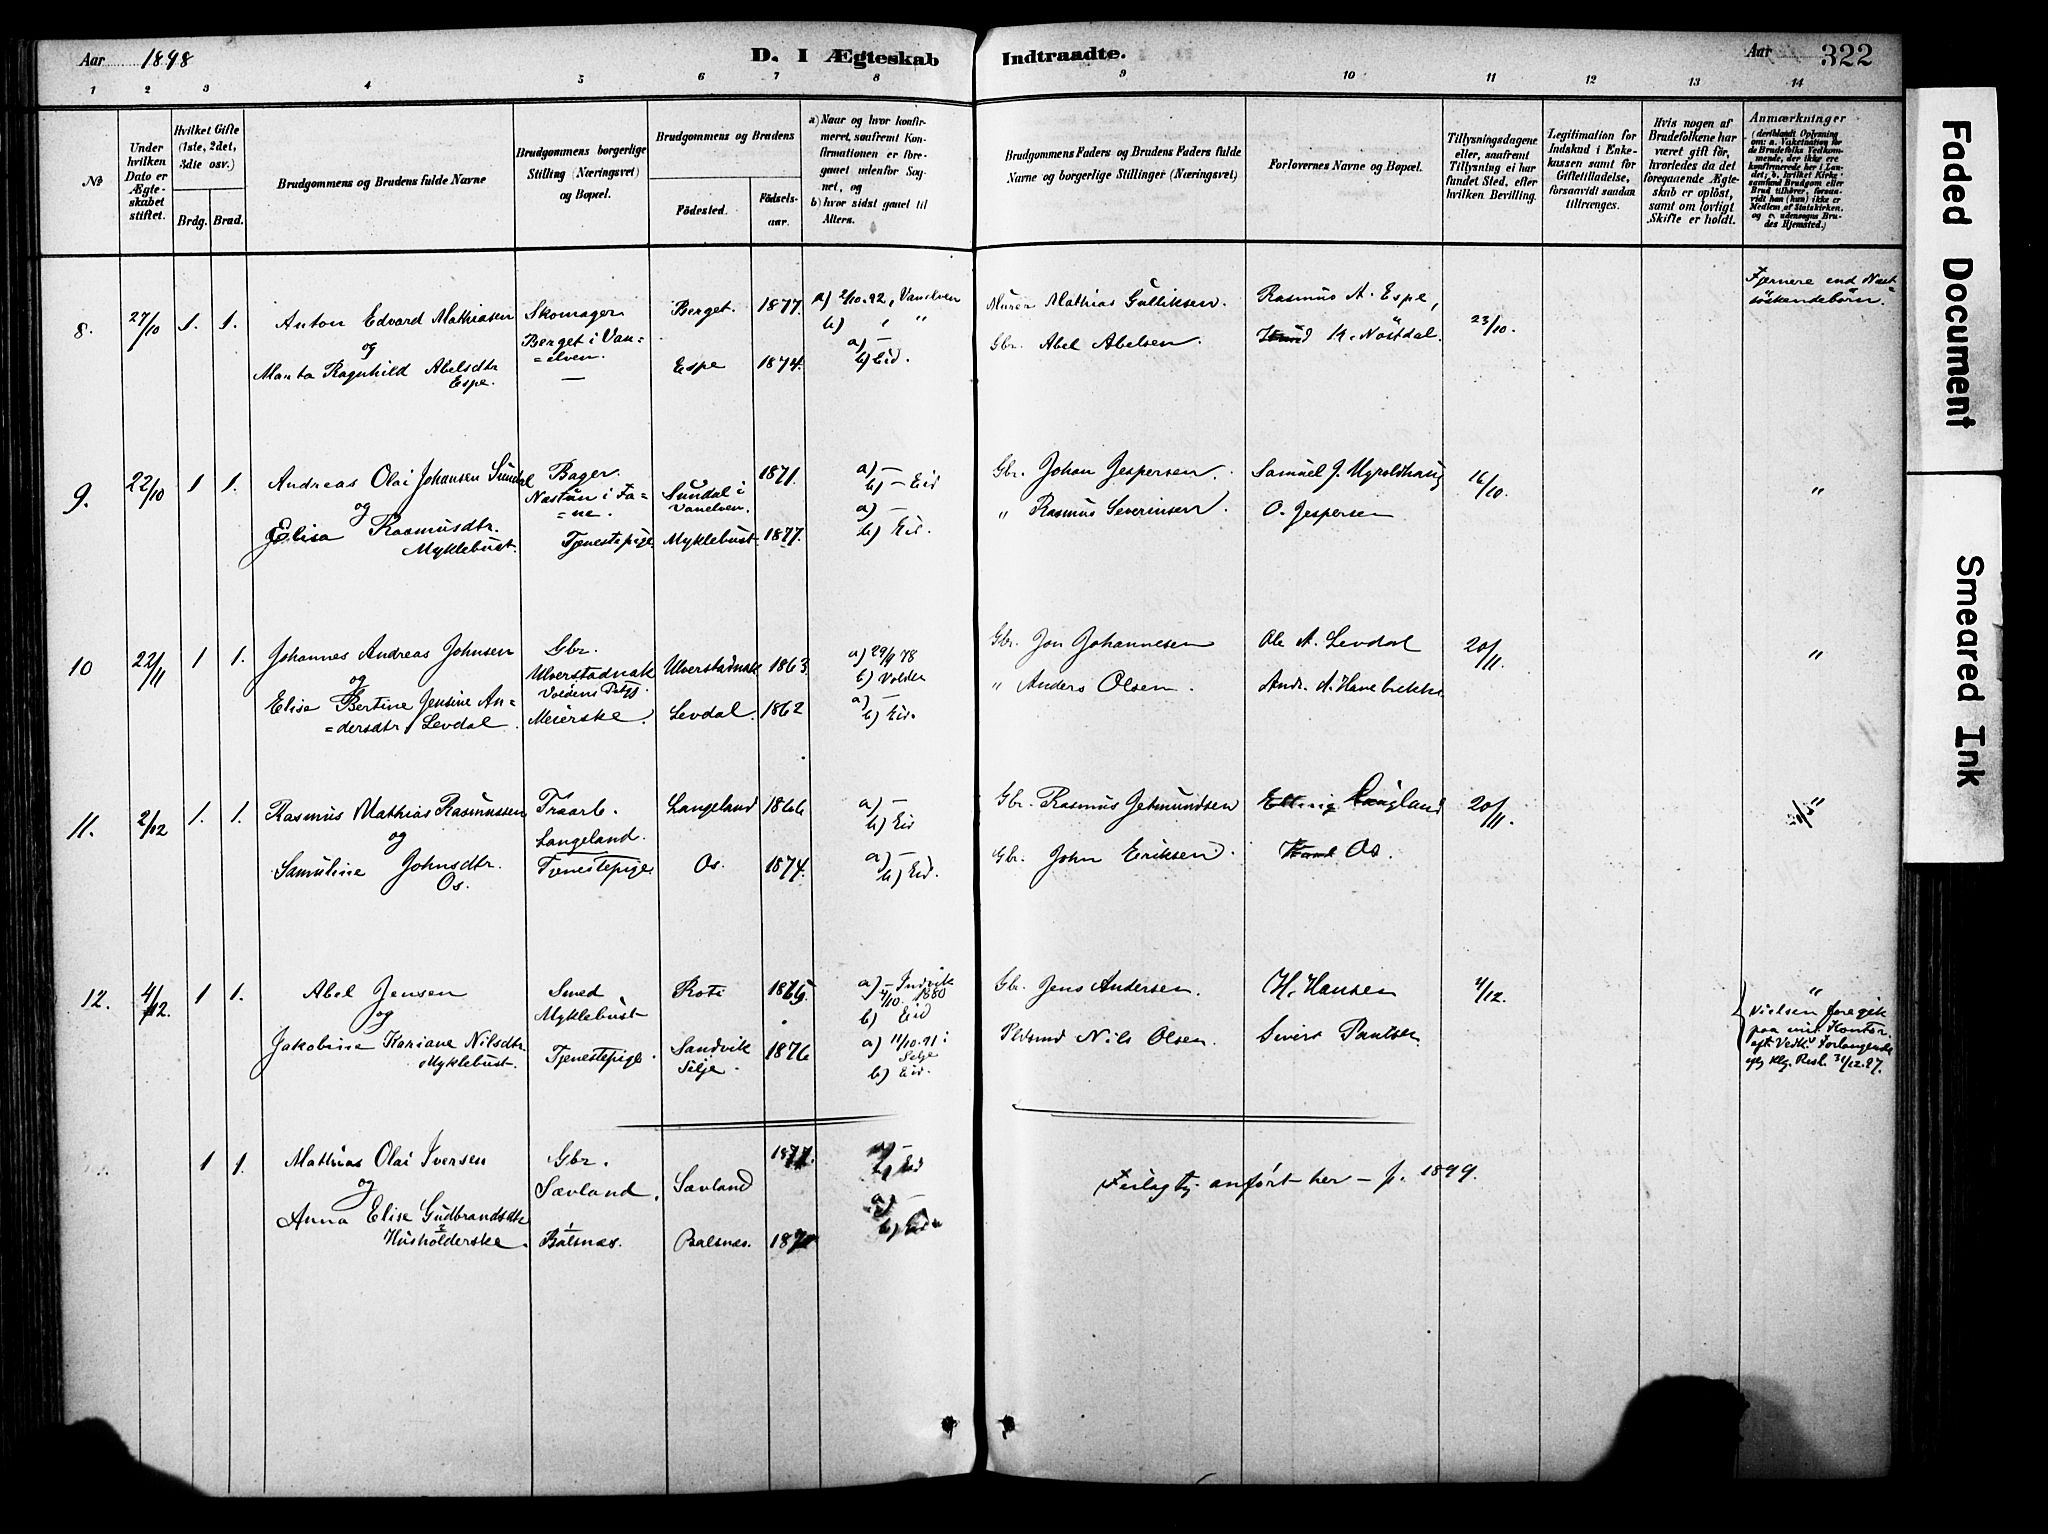 Aar 1898
D. I Ægteskab Indtraadte.
Aar
322
1 2 3 4 5 6 7 8 9 10 11 12 13 14
No
Under hvilken Dato er Ægteskabet stiftet.
Hvilket Gifte (1ste, 2det, 3die osv.)
Brdg. Brud.
Brudgommens og Brudens fulde Navne
Brudgommens borgerlige Stilling (Næringsvei) og Bopæl.
Brudgommens og Brudens
Fødested. Fødselsaar.
a) Naar og hvor konfirmeret, saafremt Konfirmationen er foregaaet udenfor Sognet, og
b) hvor sidst gaaet til Alters.
Brudgommens Faders og Brudens Faders fulde Navne og borgerlige Stillinger (Næringsvei)
Forlovernes Navne og Bopæl.
Tillysningsdagene eller, saafremt Tillysning ei har fundet Sted, efter hvilken Bevilling.
Legitimation for Indskud i Enkekassen samt for Giftetilladelse, forsaavidt saadan tiltrænges.
Hvis nogen af Brudefolkene har været gift før, hvorledes da det foregaaende Ægteskab er opløst, samt om lovligt Skifte er holdt.
Anmærkninger
(deriblandt Oplysning om: a. Vakcination for de Brudefolks Vedkommende, der ikke ere konfirmerede her i Landet; b. hvilket Kirkesamfund Brudgom eller Brud tilhører, forsaavidt han (hun) ikke er Medlem af Statskirken, og c. udensogns Brudes Hjemsted.)
8. 27/10 1. 1. Anton Edvard Mathiasen Skomager Berget. 1877. a) 2/10.92, Vanelven Murer Mathias Gulliksen. Rasmus A. Espe, 23/10. Fjernere end Næstsöskendebörn.
og Berget i Vanelven. b) "
Marta Ragnhild Abelsdtr Espe. — Espe 1874. a) — b) Eid. Gbr. Abel Abelsen. Knud R. Nöstdal.
9. 22/10 1 1. Andreas Olai Johansen Sundal Bager. Sundal i Vanelven. 1871. a) — b) — Eid Gbr. Johan Jespersen. Samuel J. 16/10. "
og Nastun i Fane.
Elisa Rasmusdtr. Myklebust. Tjenestepige Myklebust. 1877. a) — b) Eid. " Rasmus Severinsen. O. Jespersen
10 22/11 1 1. Johannes Andreas Johnsen Gbr. Ulverstadnak 1863. a) 29/9 78 b) Volden Gbr. Jon Johannesen Ole A. Levdal 20/11. "
og Ulverstadnak Voldens
Elise Bertine Jensine Andersdtr Levdal. Meierske. Levdal. 1862 a) — b) Eid. " Anders Olsen. Andr. A. Havebrekke
11. 2/12 1. 1. Rasmus Mathias Rasmussen Traarb. Langeland 1866 a) — b) Eid Gbr. Rasmus Jetmundsen Langland 20/11. "
og Langeland.
Samuline Johnsdtr. Os. Tjenestepige Os. 1874. a) — b) Eid. Gbr. John Eriksen. Knud Os.
12. 4/12. 1 1. Abel Jensen Smed Roti 1865. a) — Indvik 4/10 1880 b) Eid Gbr. Jens Andersen. H. Hansen 4/12. "
og Myklebust
Jakobine Kariane Nilsdtr. Myklebust. Tjenestepige. Sandvik Selje. 1876 a) 11/10.91 i Selje b) Eid. Nils Olsen. Sivert Paulsen
Vielsen foregik paa mit Kontor eft. Vedk. Forlangende Kgl. Resl. 31/12.97.
1 1. Mathias Olai Iversen Gbr. Sævland 1877. a) — b) Eid
og Sævland.
Anna Elise Gudbrandsdtr Husholderske. Bálsnæs. Balsnæs. 1871 a) — b) Eid.
Feilagtig anført her — p. 1899.
Faded Document
Smeared Ink